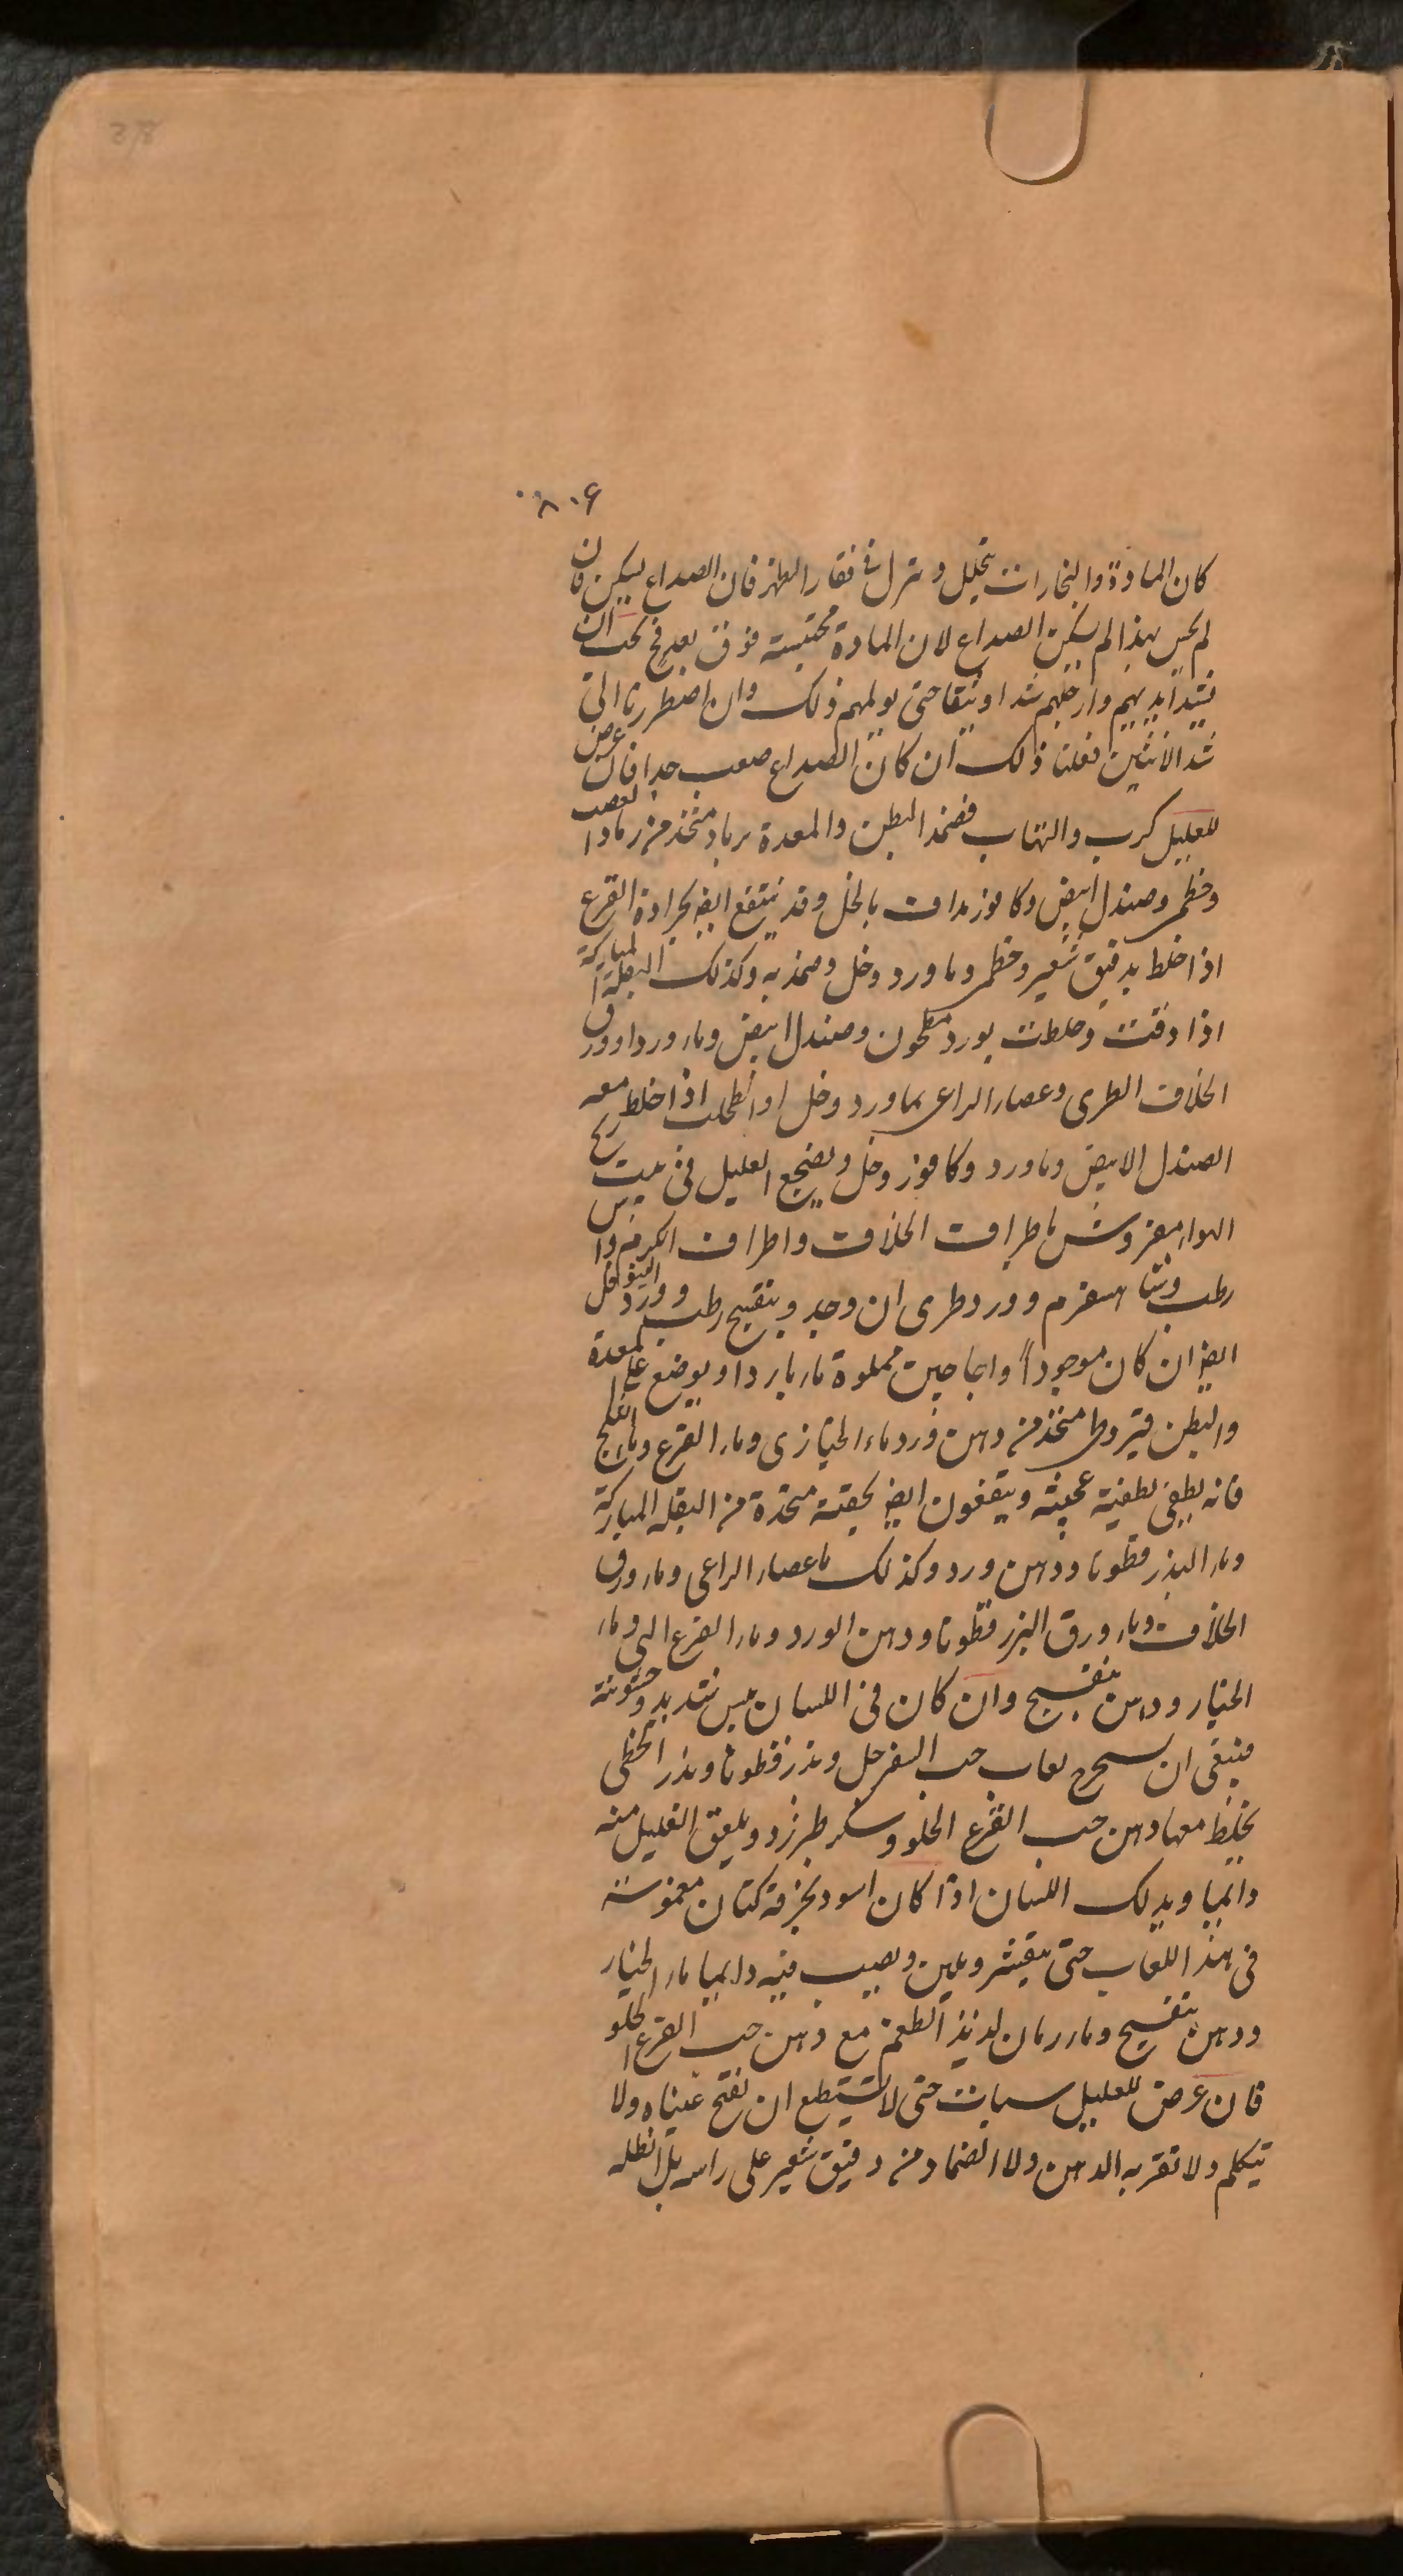 ٨٠٦
كان المادة والبخارات يتحلل وينزل فى فقار الظهر فان الصداع يسكن فان
لم يحس بهذا لم يسكن الصداع لان المادة محتبسة فوق بعد فح يجب ان
نشد ايديهم وارجلهم شدا وثيقا حتى يولمهم ذلك وان اضطررنا الى
شد الانثيين فعلنا ذلك ان كان الصداع صعب جدا فان عرض
للعليل كرب والتهاب فضمد البطن والمعدة متخذ من
وخطمى وصندل ابيض وكافور مداف بالخل وقد ينتفع ايض بجرادة القرع
اذا خلط بدقيق شعير وخطمى وماورد وخل وضمد به وكذلك البقلة المباركة
اذا دقت وخلطت بورد مطحون وصندل ابيض وماء ورد او ورق
الخلاف الطرى وعصا الراعى بماورد وخل او الطحلب اذا خلط معه
الصندل الابيض وماورد وكافور وخل ويضجع العليل فى بيت ريح
الهواء مفروش باطراف الخلاف واطراف الكرم و
رطب وشاهسفرم وورد طرى ان وجد وبنفسج رطب وورد النيلوفر
ايض ان كان موجودا واجاجين مملوة ماء باردا ويوضع على المعدة
والبطن قيروطى متخذ من دهن ورد وماء الخبازى وماء القرع وماء
فانه يطفى تطفية عجيبة وينتفعون ايض بحقنة متخذة من البقله المباركة
وماء البذر قطونا ودهن ورد وكذلك ماء عصاء الراعى وماء ورق
الخلاف وماء ورق البزر قطونا ودهن الورد وماء القرع النى وماء
الخيار ودهن بنفسج وان كان فى اللسان يبس شديد وخشونة
فينبغى ان يستخرج لعاب حب السفرجل وبذر قطونا وبذر الخطمى
يخلط معها دهن حب القرع الحلو وسكر طبرزد ويلعق العليل منه
دايما ويدلك اللسان اذا كان اسود بخرقة كتان مغموسة
فى هذا اللعاب حتى يتقشر ويلين ويصيب فيه دايما ماء الخيار
ودهن بنفسج وماء رمان لذيذ الطعم مع دهن حب القرع الحلو
فان عرض للعليل سبات حتى لا يستطيع ان يفتح عيناه ولا
يتكلم ولا تقربه الدهن ولا الضماد من دقيق شعير على راسه بل انطله